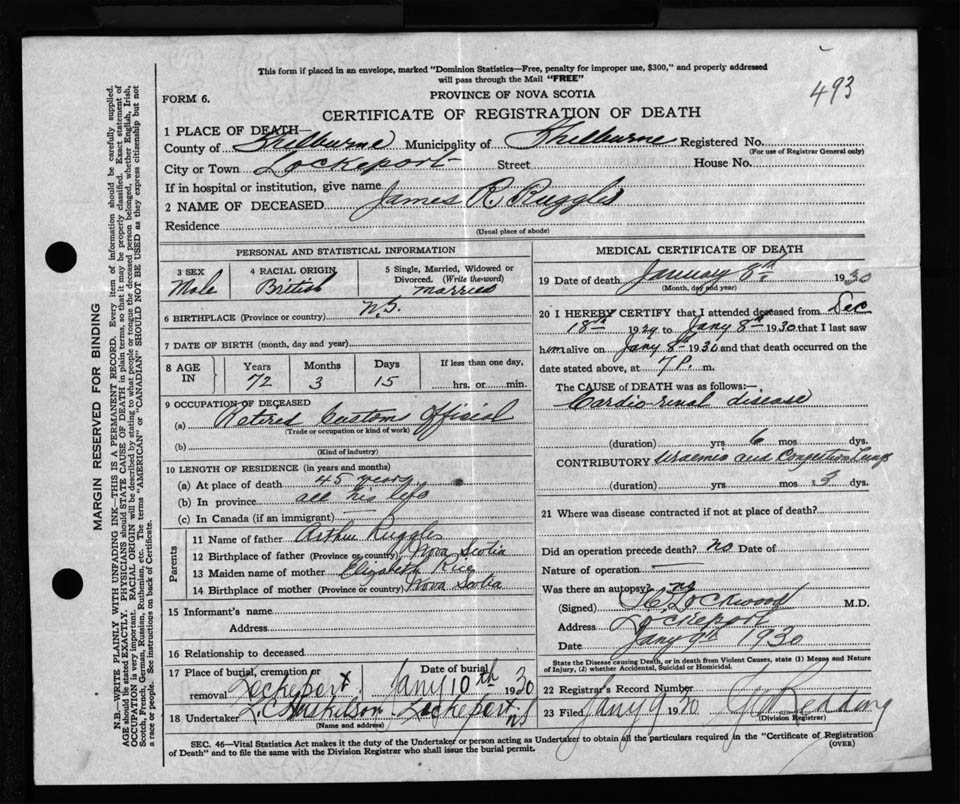 493
This form if placed in an envelope, marked "Dominion Statistics—Free, penalty for improper use, $300," and properly addressed
will pass through the Mail "FREE"
FORM 6.
PROVINCE OF NOVA SCOTIA
CERTIFICATE OF REGISTRATION OF DEATH
1 PLACE OF DEATH—
County of Shelburne Municipality of Shelburne Registered No.
(For use of Registrar General only)
City or Town Lockeport Street House No.
If in hospital or institution, give name
2 NAME OF DECEASED James R. Ruggles
Residence
(Usual place of abode)
PERSONAL AND STATISTICAL INFORMATION
3 SEX Male
4 RACIAL ORIGIN British
5 Single, Married, Widowed or
Divorced. (Write the word)
married
6 BIRTHPLACE (Province or country) N.S.
7 DATE OF BIRTH (month, day and year)
8 AGE IN
Years 72
Months 3
Days 15
If less than one day,
hrs. or min.
9 OCCUPATION OF DECEASED
(a) Retired Customs Official
(Trade or occupation or kind of work)
(b)
(Kind of industry)
10 LENGTH OF RESIDENCE (in years and months)
(a) At place of death 45 years
(b) In province all his life
(c) In Canada (if an immigrant)
Parents
11 Name of father Arthur Ruggles
12 Birthplace of father (Province or country) Nova Scotia
13 Maiden name of mother Elizabeth Rice
14 Birthplace of mother (Province or country) Nova Scotia
15 Informant's name
Address
16 Relationship to deceased
17 Place of burial, cremation or
removal Lockeport
Date of burial
Jany 10th 1930
18 Undertaker Lockeport NS
(Name and address)
MEDICAL CERTIFICATE OF DEATH
19 Date of death January 8th 1930
(Month, day and year)
20 I HEREBY CERTIFY that I attended deceased from Dec
18th 1929 to Jany 8th 1930 that I last saw
him alive on Jany 8th 1930 and that death occurred on the
date stated above, at 7 P. m.
The CAUSE of DEATH was as follows:—
Cardio-renal disease
(duration) yrs 6 mos dys.
CONTRIBUTORY Uraemia and Congestion Lungs
(duration) yrs mos 3 dys.
21 Where was disease contracted if not at place of death?
Did an operation precede death? no Date of
Nature of operation
Was there an autopsy? no
(Signed) Lockwood M.D.
Address Lockeport
Date Jany 9th 1930
State the Disease causing Death, or in death from Violent Causes, state (1) Means and Nature
of Injury, (2) whether Accidental, Suicidal or Homicidal.
22 Registrar's Record Number
23 Filed Jany 9 1930
(Division Registrar)
SEC. 46—Vital Statistics Act makes it the duty of the Undertaker or person acting as Undertaker to obtain all the particulars required in the "Certificate of Registration
of Death" and to file the same with the Division Registrar who shall issue the burial permit.
(OVER)
MARGIN RESERVED FOR BINDING
N.B.—WRITE PLAINLY WITH UNFADING INK—THIS IS A PERMANENT RECORD. Every item of information should be carefully supplied.
AGE should be stated EXACTLY. PHYSICIANS should STATE CAUSE OF DEATH in plain terms, so that it may be properly classified. Exact statement of
OCCUPATION is very important. RACIAL ORIGIN will be described by stating to what people or tongue the deceased person belonged, whether English, Irish,
Scotch, French, German, Russian, Ruthenian, etc. The terms "AMERICAN" or "CANADIAN" SHOULD NOT BE USED as they express citizenship but not
a race or people. See instructions on back of Certificate.